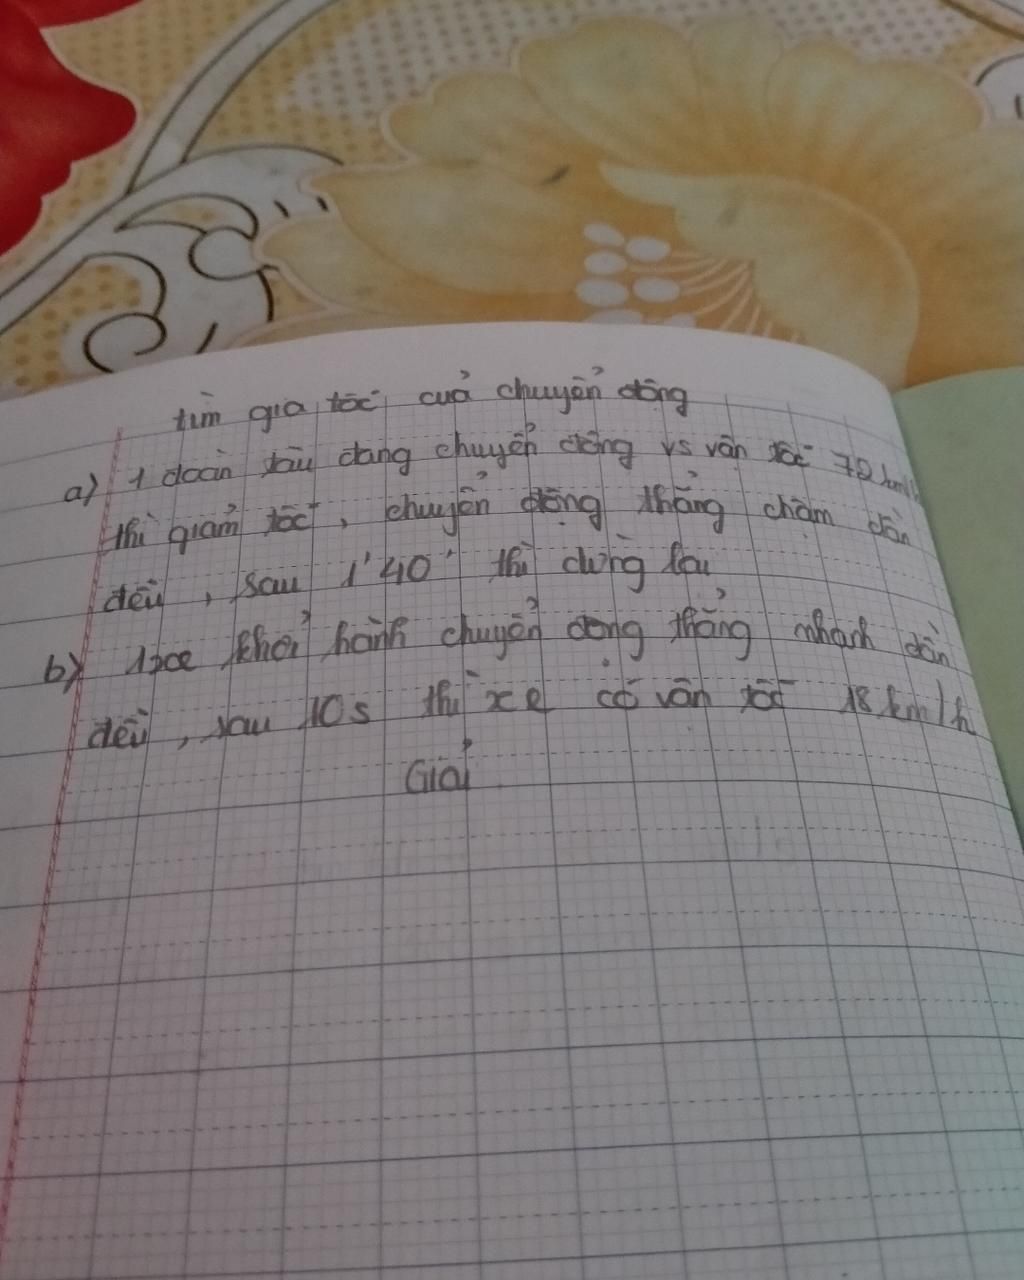 tìm gia tốc cuả chuyển động
a) 1 đoàn tàu đang chuyển động vs vân tốc 72 km/h
thì giảm tốc, chuyển động thẳng châm dần
đều, sau 1'40' thì dừng lại
b) 1 xe khởi hành chuyển động thẳng nhanh dần
đều, sau 10s thì xe có vân tốc 18 km/h
Giải